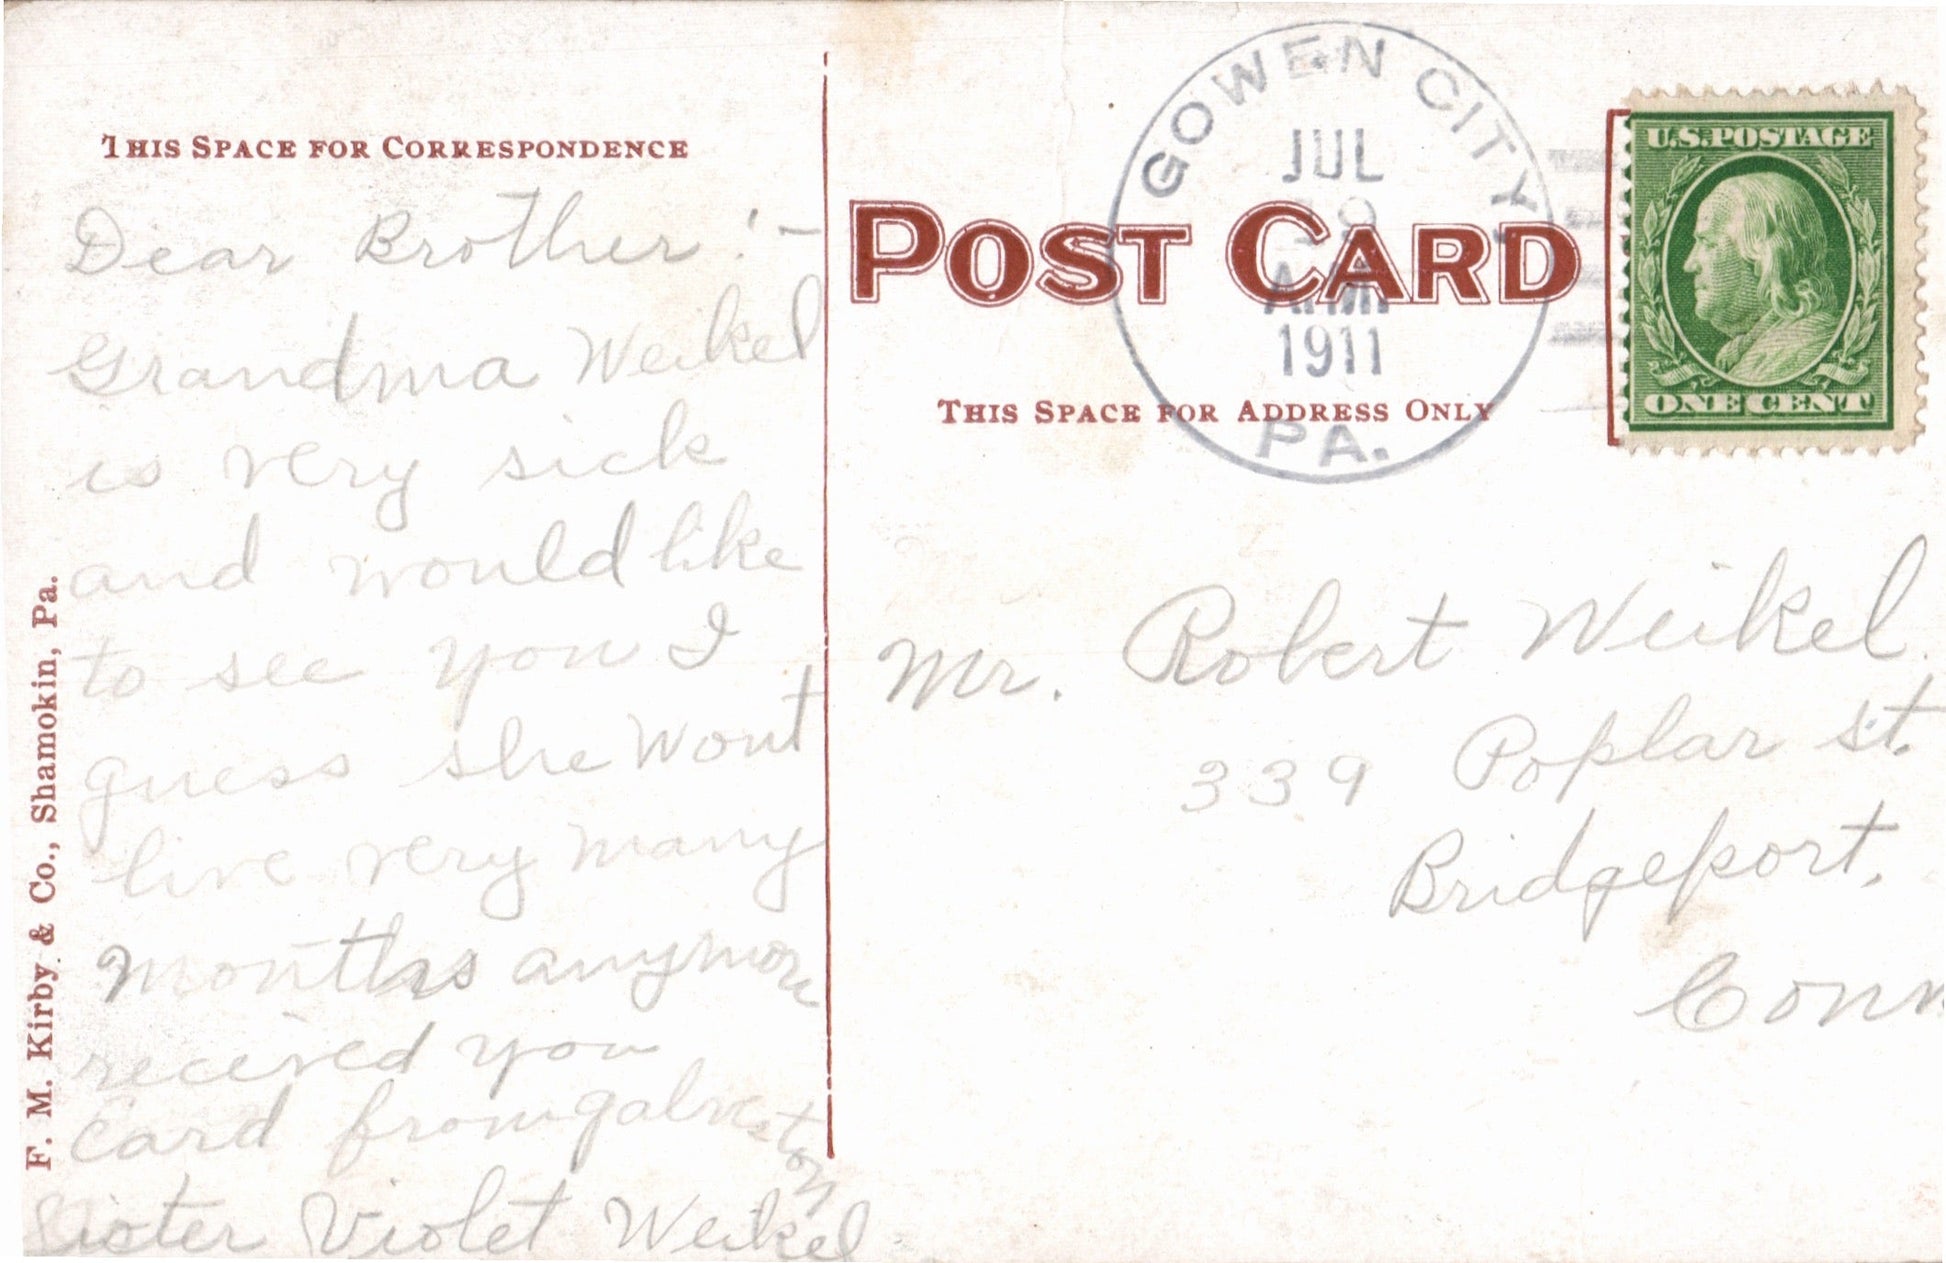 THIS SPACE FOR CORRESPONDENCE
Dear Brother!-
Grandma Weikel
is very sick
and would like
to see you I
guess she wont
live very many
months anymore
received you
Card from galveston
Sister Violet Weikel
F. M. Kirby & Co., Shamokin, Pa.
POST CARD
THIS SPACE FOR ADDRESS ONLY
GOWEN CITY
JUL
19
A.M.
1911
PA.
U.S. POSTAGE
ONE CENT
Mr. Robert Weikel
339 Poplar St.
Bridgeport,
Conn